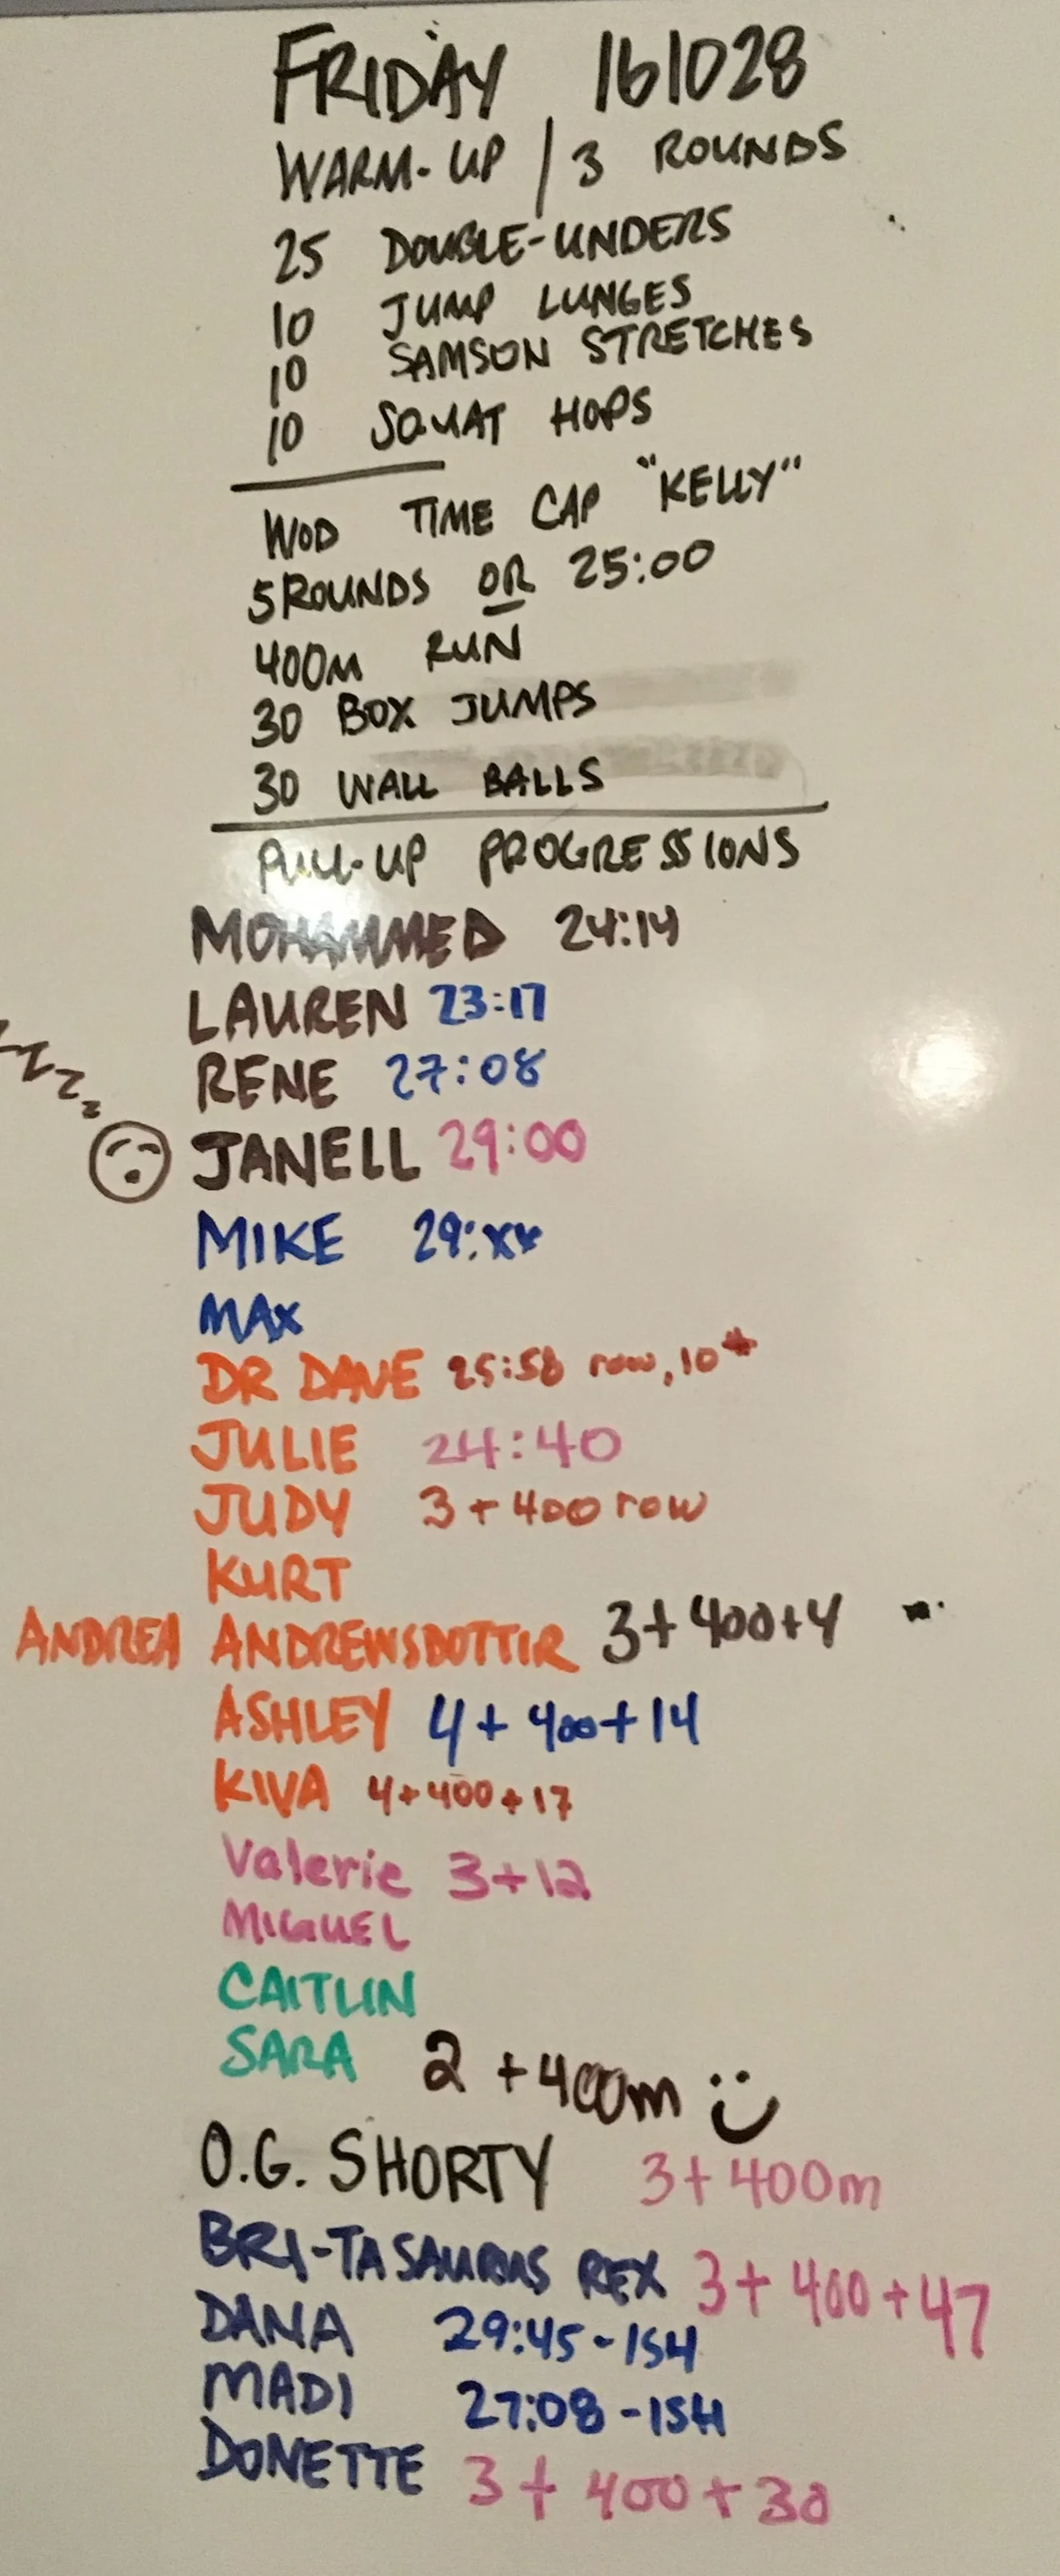 FRIDAY 161028
WARM-UP / 3 ROUNDS
25 DOUBLE-UNDERS
10 JUMP LUNGES
10 SAMSON STRETCHES
10 SQUAT HOPS
WOD TIME CAP "KELLY"
5 ROUNDS OR 25:00
400M RUN
30 BOX JUMPS
30 WALL BALLS
PULL-UP PROGRESSIONS
MOHAMMED 24:14
LAUREN 23:17
RENE 27:08
ZZZ
JANELL 29:00
MIKE 29:XX
MAX
DR DAVE 25:58 row, 10#
JULIE 24:40
JUDY 3 + 400 row
KURT
ANDREA ANDREWSDOTTIR 3+400+4
ASHLEY 4 + 400 + 14
KIVA 4+400+17
Valerie 3+12
MIGUEL
CAITLIN
SARA 2 +400m
O.G. SHORTY 3+400m
BRI-TASAURUS REX 3+ 400+47
DANA 29:45-ISH
MADI 27:08-ISH
DONETTE 3 + 400 + 30